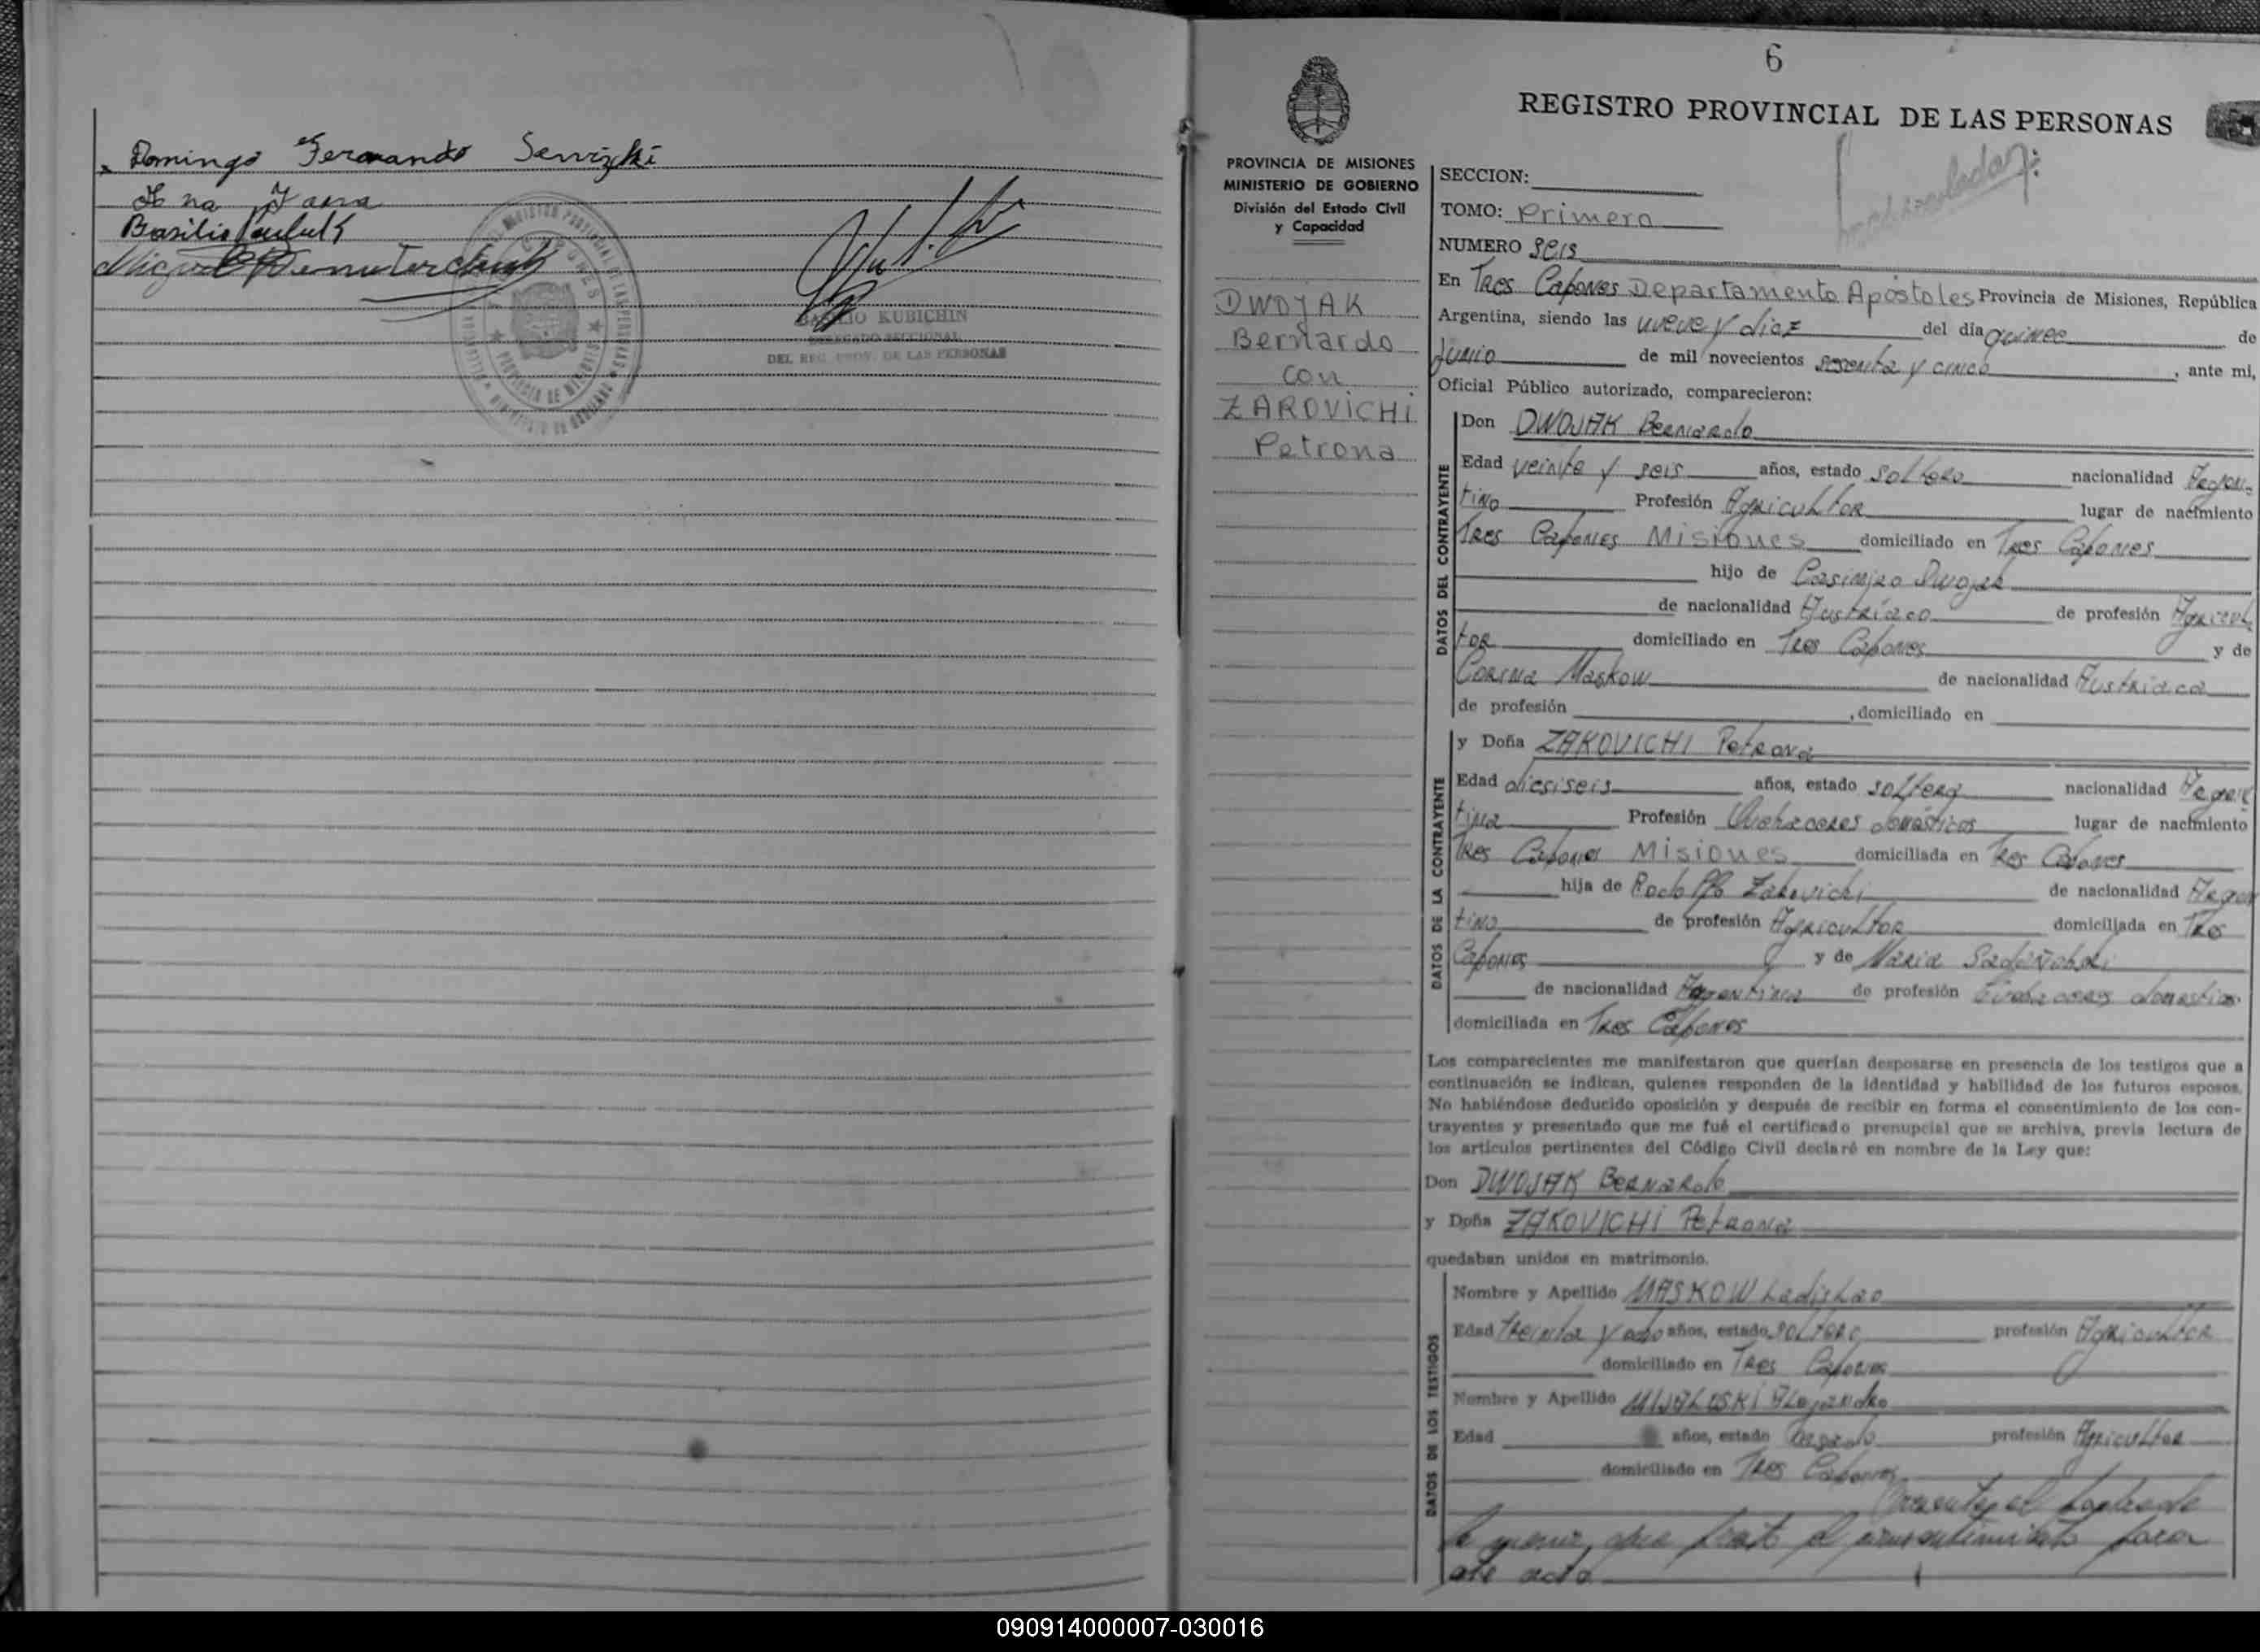 Domingo Fernando Serwizki
Basilio
Miguel
BASILIO KUBICHIN
DELEGADO SECCIONAL
DEL REG. PROV. DE LAS PERSONAS
PROVINCIA DE MISIONES
6
REGISTRO PROVINCIAL DE LAS PERSONAS
PROVINCIA DE MISIONES
MINISTERIO DE GOBIERNO
División del Estado Civil
y Capacidad
DWOJAK
Bernardo
con
ZAROVICHI
Petrona
SECCION:
TOMO: Primero
NUMERO seis
En Tres Capones Departamento Apostoles Provincia de Misiones, República
Argentina, siendo las nueve y diez del día quince de
Junio de mil novecientos sesenta y cinco, ante mi,
Oficial Público autorizado, comparecieron:
DATOS DEL CONTRAYENTE
Don DWOJAK Bernardo
Edad veinte y seis años, estado soltero nacionalidad Argen-
tino Profesión Agricultor lugar de nacimiento
Tres Capones Misiones domiciliado en Tres Capones
hijo de Casimiro Dwojak
de nacionalidad Austríaco de profesión Agricul
tor domiciliado en Tres Capones y de
Corina Maskow de nacionalidad Austriaca
de profesión , domiciliado en
DATOS DE LA CONTRAYENTE
y Doña ZAKOVICHI Petrona
Edad diesiseis años, estado soltera nacionalidad Argen
tina Profesión Quehaceres domésticos lugar de nacimiento
Tres Capones Misiones domiciliada en Tres Capones
hija de Rodolfo Zakovichi de nacionalidad Argen
tino de profesión Agricultor domiciliada en Tres
Capones y de Maria
de nacionalidad Argentina de profesión domesticos
domiciliada en Tres Capones
Los comparecientes me manifestaron que querían desposarse en presencia de los testigos que a
continuación se indican, quienes responden de la identidad y habilidad de los futuros esposos.
No habiéndose deducido oposición y después de recibir en forma el consentimiento de los con-
trayentes y presentado que me fué el certificado prenupcial que se archiva, previa lectura de
los artículos pertinentes del Código Civil declaré en nombre de la Ley que:
Don DWOJAK Bernardo
y Doña ZAKOVICHI Petrona
quedaban unidos en matrimonio.
DATOS DE LOS TESTIGOS
Nombre y Apellido MASKOW Ladislao
Edad treinta y ocho años, estado soltero profesión Agricultor
domiciliado en Tres Capones
Nombre y Apellido MIJALESKI Alejandro
Edad años, estado Casado profesión Agricultor
domiciliado en Tres Capones
Presente el padre de
la menor, que el consentimiento para
este acto
090914000007-030016